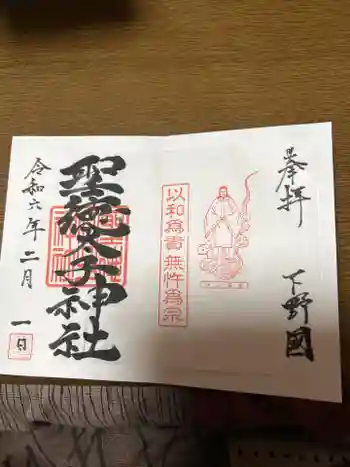 奉拝
下野國
以和爲貴無忤爲宗
聖徳太子神社
令和六年二月一日